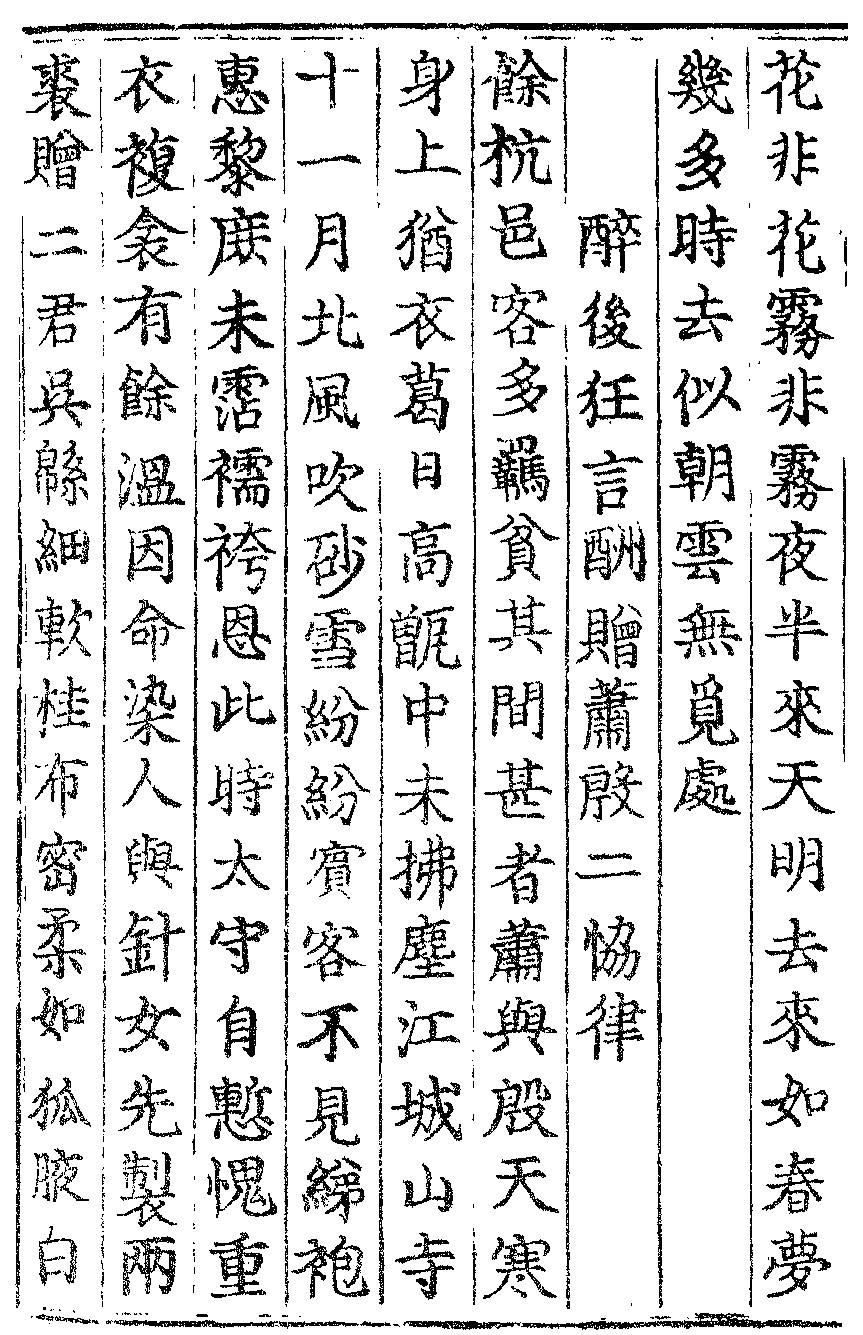 花非花霧非霧夜半來天明去來如春夢
幾多時去似朝雲無覓處
醉後狂言酬贈蕭殷二恊律
餘杭邑客多羈貧其間甚者蕭與殷天寒
身上猶衣葛日高甑中未拂塵江城山寺
十一月北風吹砂雪紛紛賓客不見綈袍
惠黎庻未霑襦袴恩此時太守自慙愧重
衣複衾有餘溫因命染人與針女先製兩
裘贈二君吳緜細軟桂布密柔如狐腋白